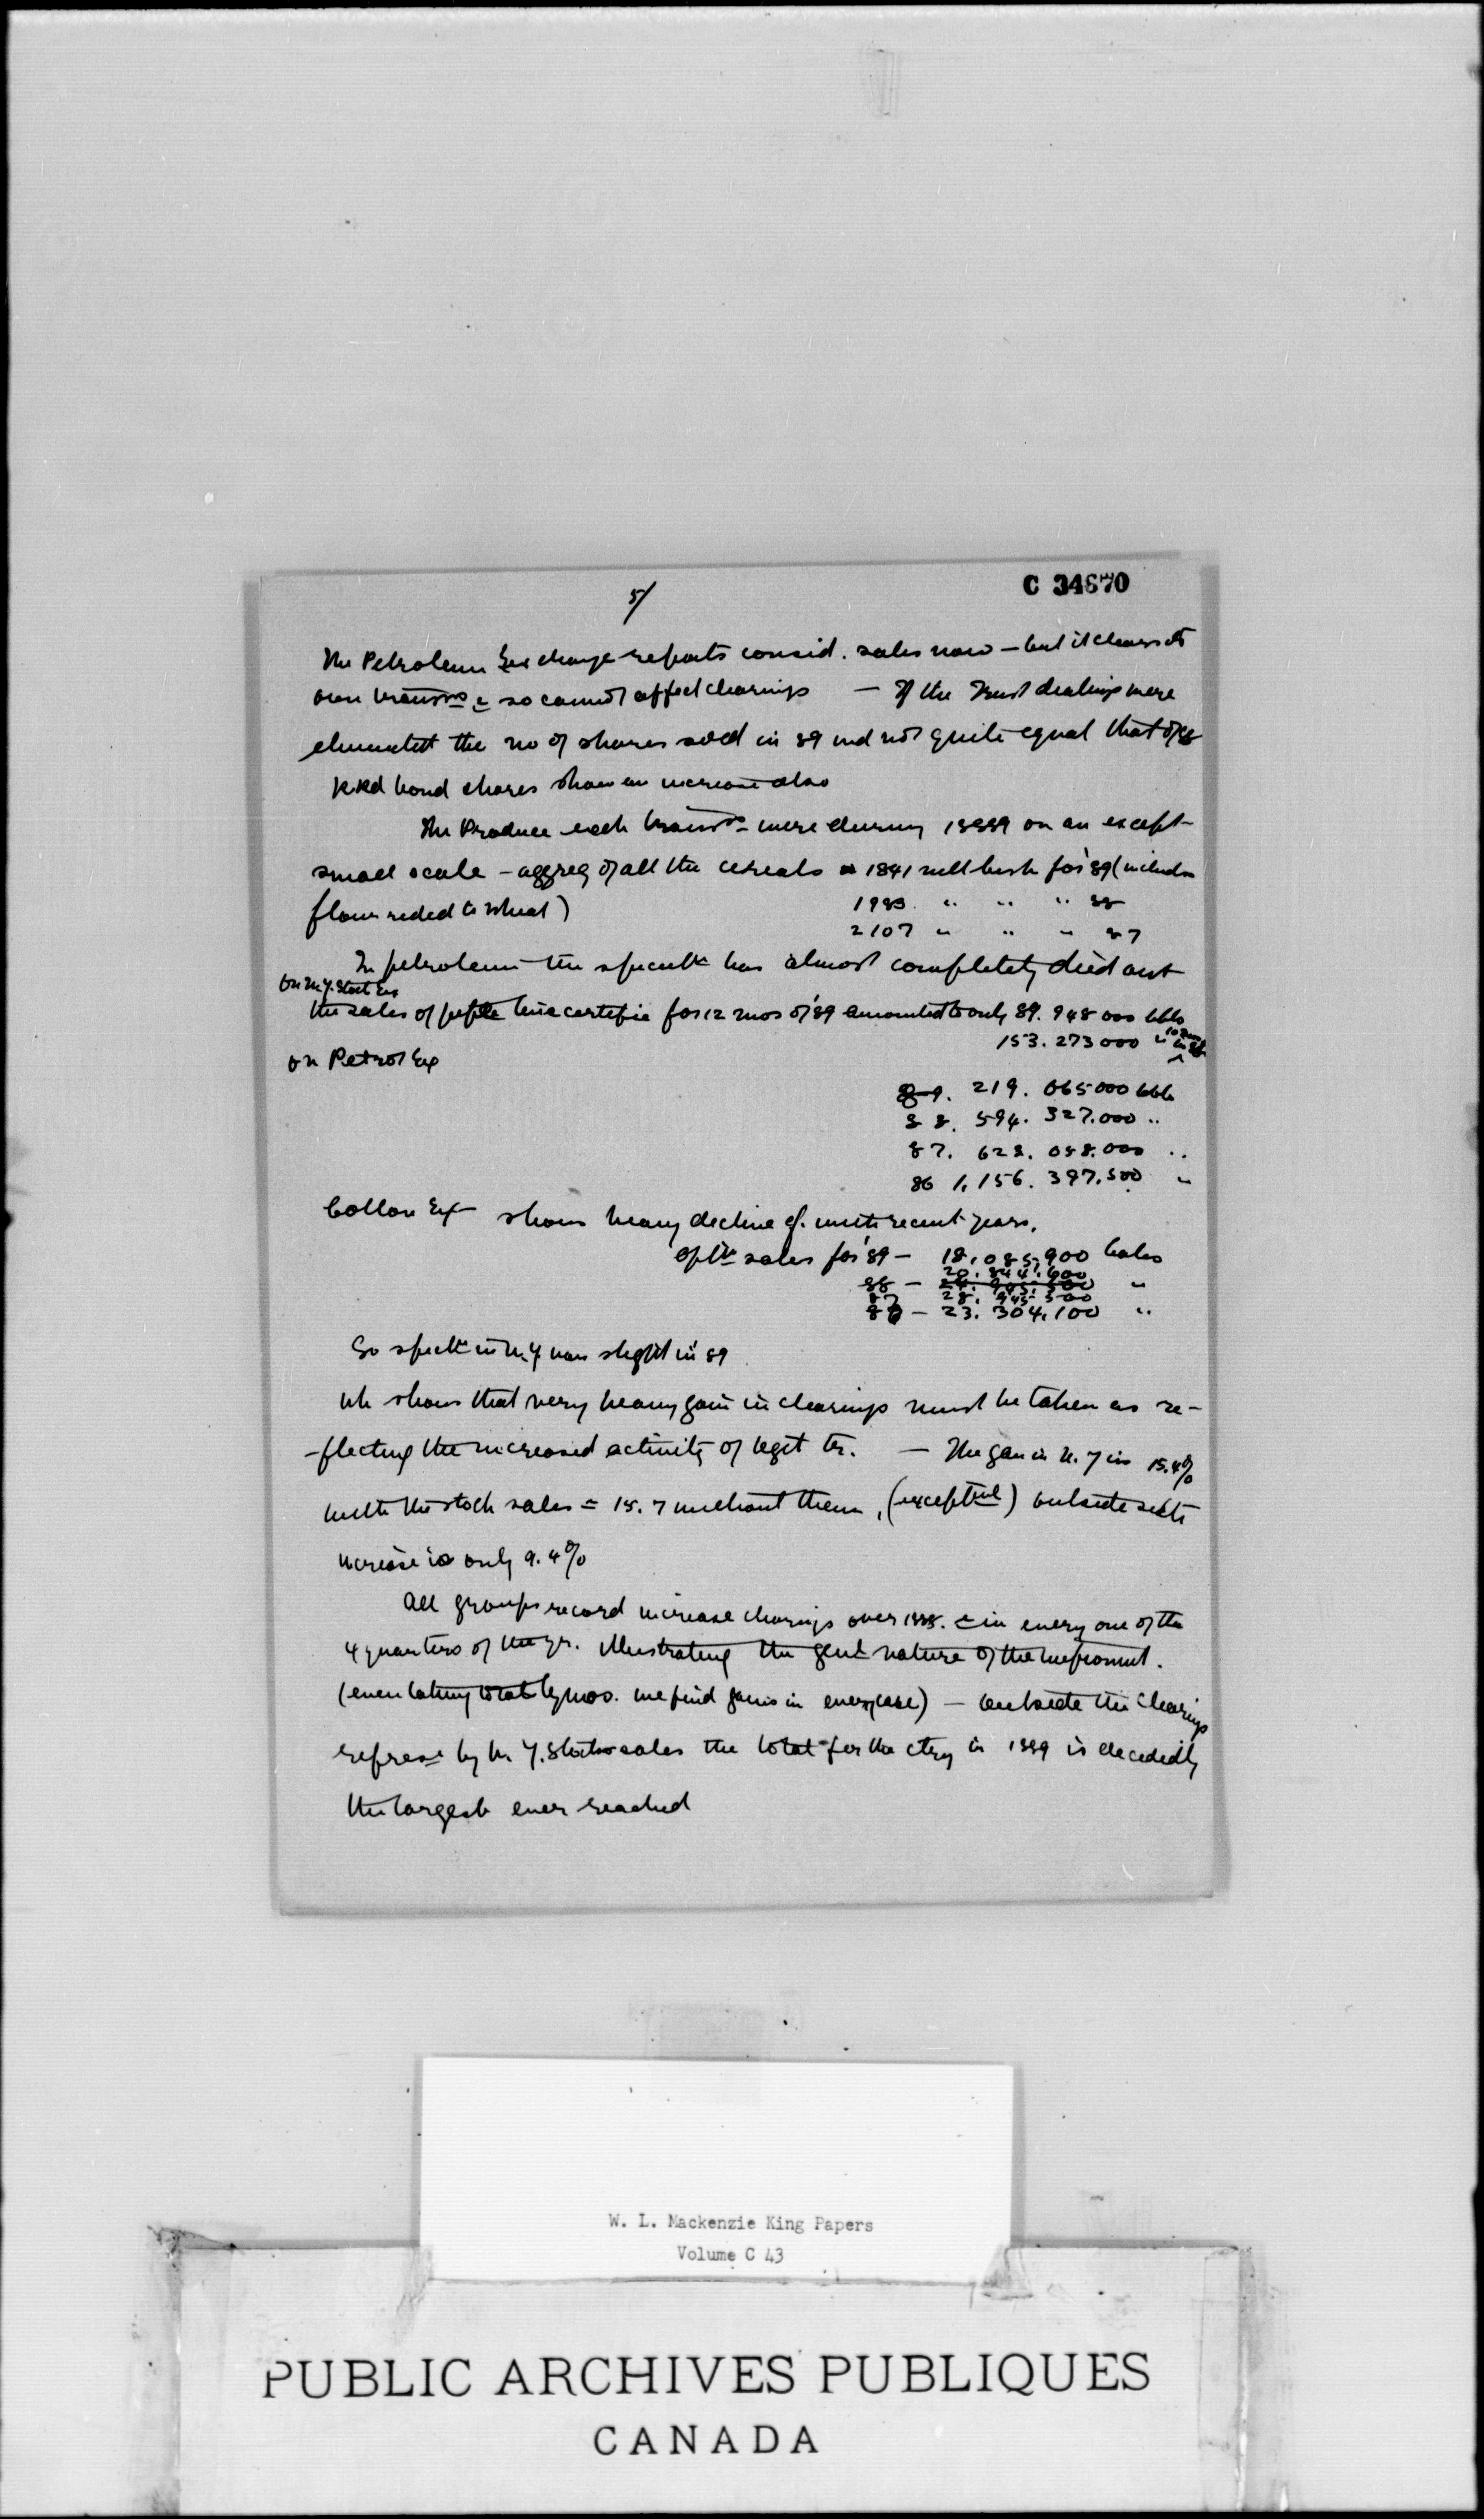 5/
C 34670
The Petroleum Exchange reports consid. sales now – but it clears its
own transns & so cannot affect clearings – If the Trust dealings were
eliminated the no of shares sold in 89 wd not quite equal that of 88
R.Rd bond shares show an increase also
The Produce exch transns were during 1889 on an except
small scale – aggreg of all the cereals 1841 mill bush for '89 (includn
flour reded to wheat) 1983 " " " 88
2107 " " " 87
In petroleum the speculn has almost completely died out
On N.Y. Stock Ex
the sales of pipe line certific for 12 mos of '89 amounted to only 89.948 000 bbls
153.273000 " in 88
on Petrol Ex
89. 219. 065000 bbls
88. 594. 327.000 "
87. 628. 058.000 "
86 1,156. 397.500 "
Cotton Ex shows heavy decline cf. with recent years.
Optn sales for '89 – 18,085,900 bales
20.844.600
88 – "
87 28. 945 500
86 – 23. 304,100 "
So specltn in N.Y was slight in 89
wh shows that very heavy gain in clearings must be taken as re-
-flecting the increased activity of legit tr. – The gain in N.Y is 15.4%
with the stock sales = 15.7 without them, (exceptnl) outside
increase is only 9.4%
All groups record increase clearings over 1888. & in every one of the
4 quarters of the yr. illustrating the genl nature of the improvmt.
(even taking totals by mos. we find gains in every case) – outside the clearings
represd by N.Y. Stock sales the total for the ctry in 1889 is decidedly
the largest ever reached
W. L. Mackenzie King Papers
Volume C 43
PUBLIC ARCHIVES PUBLIQUES
CANADA